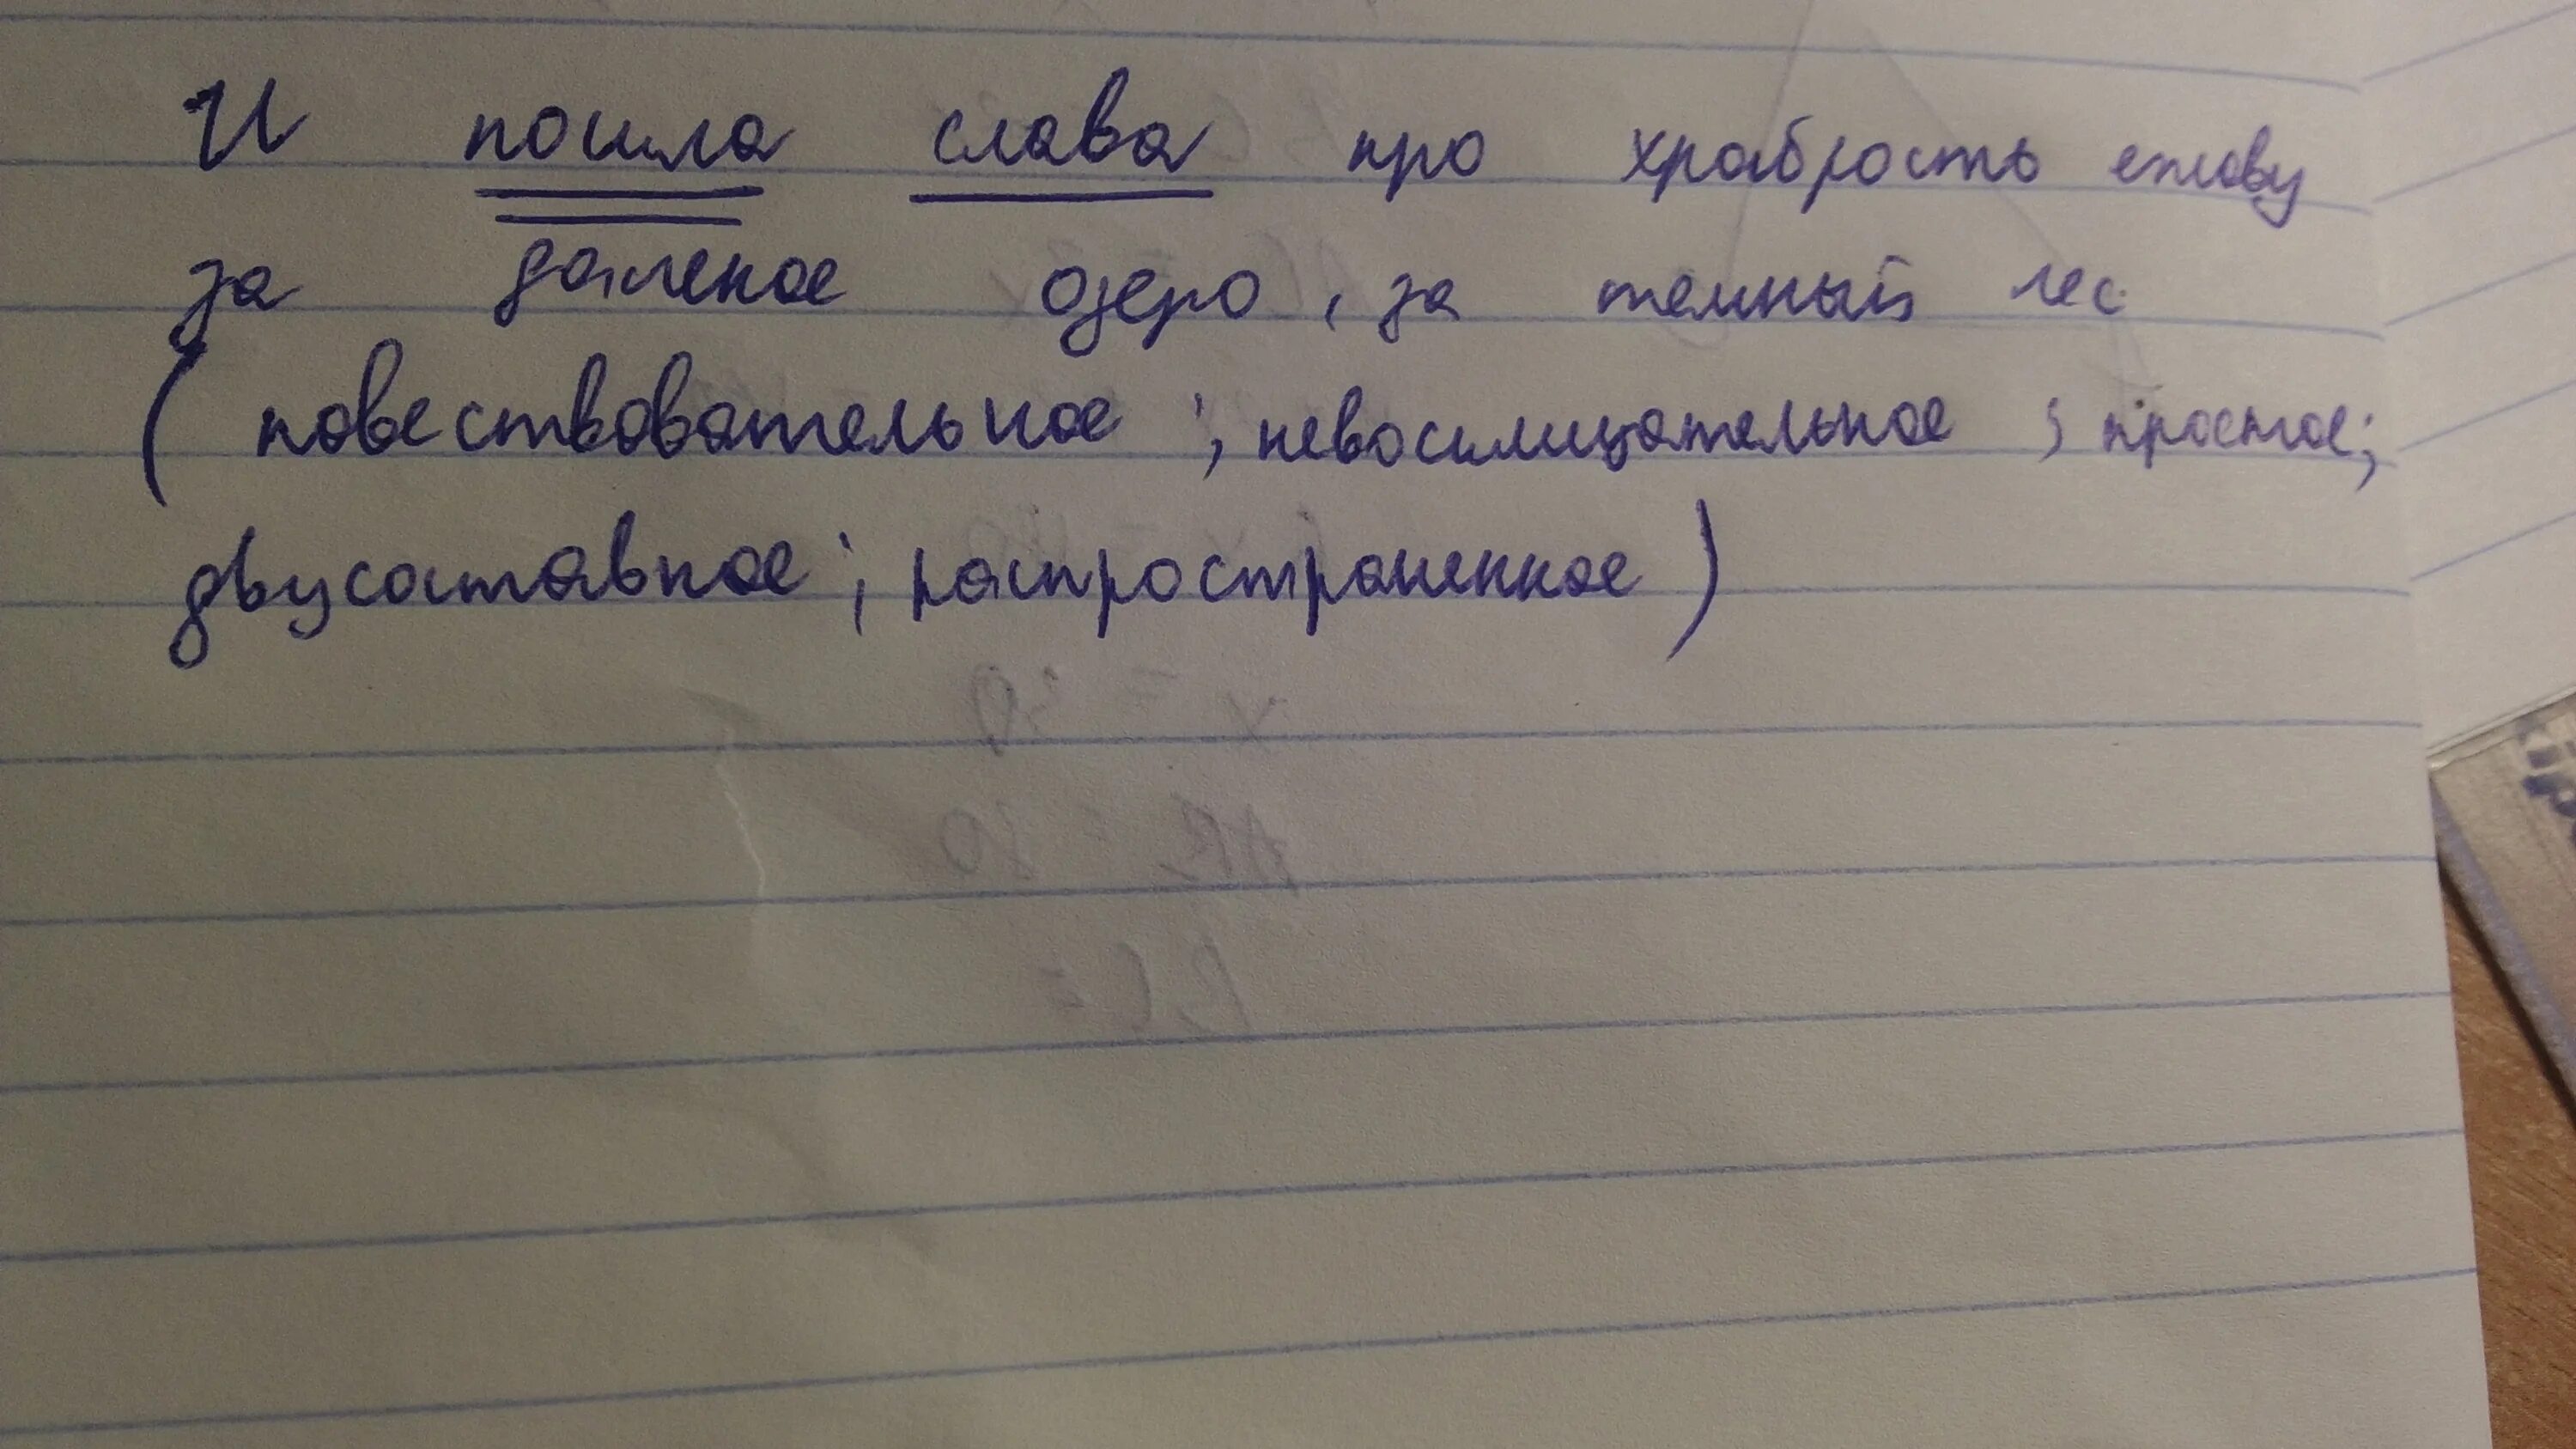 И пошла слава про храбрость ежову
за далекое озеро, за темный лес
(повествовательное; невосклицательное; простое;
двусоставное; распространенное)
x = 39